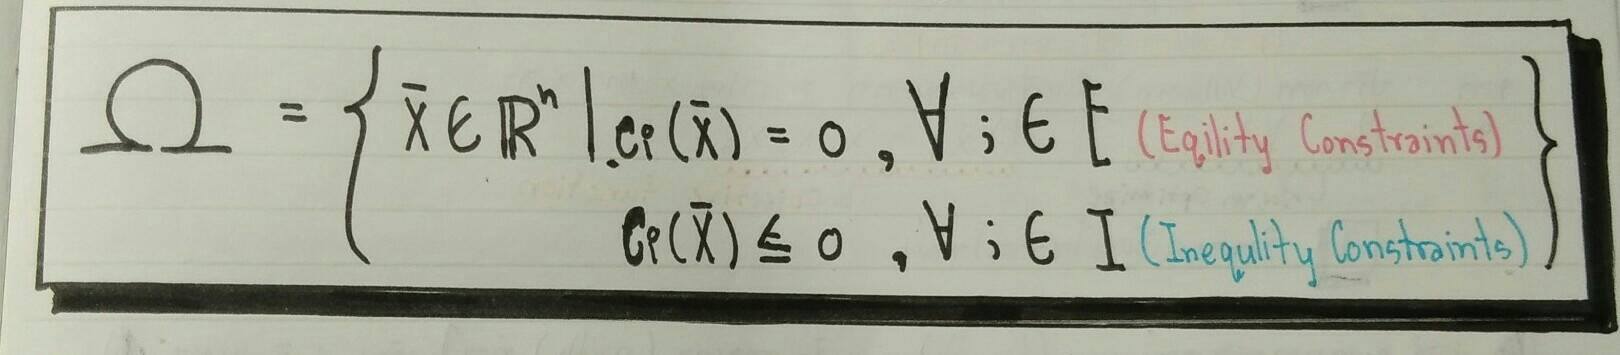 Ω = { x̄ ∈ ℝⁿ | cᵢ(x̄) = 0 , ∀ i ∈ E (Eqility Constraints)
cᵢ(x̄) ≤ 0 , ∀ i ∈ I (Inequlity Constraints) }